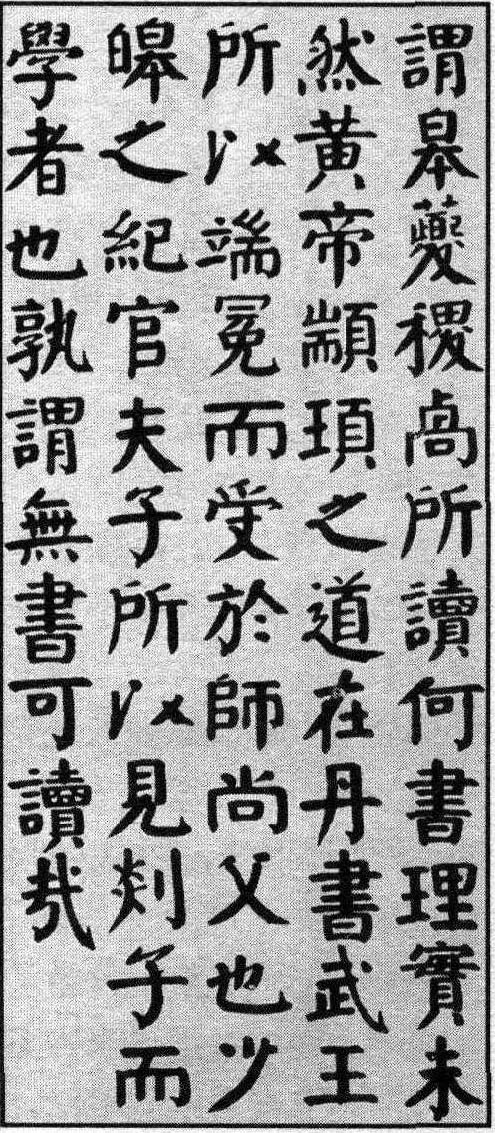 謂皋夔稷卨所讀何書理實未
然黃帝顓頊之道在丹書武王
所以端冕而受於師尚父也少
皞之紀官夫子所以見郯子而
學者也孰謂無書可讀哉